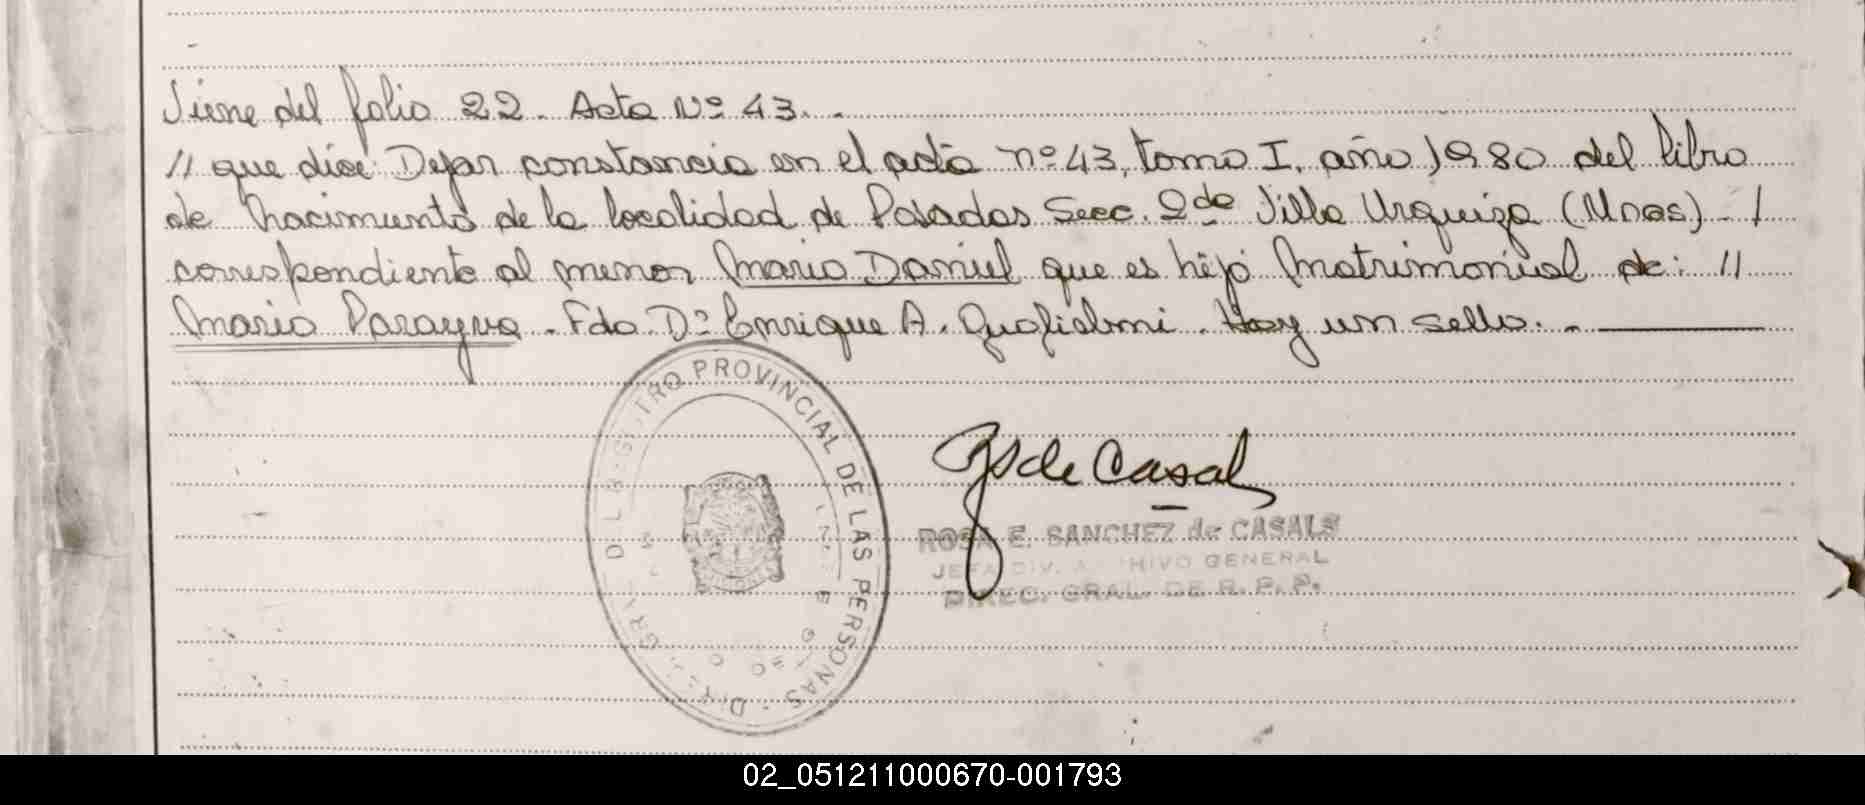 Viene del folio 22. Acta Nº 43. -
// que dice: Dejar constancia en el acta nº 43, tomo I, año 1980 del libro
de nacimiento de la localidad de Posadas Secc. 2da Villa Urquiza (Mnes). - /
correspondiente al menor Mario Daniel que es hijo matrimonial de: //
Mario Parayva - Fdo. Dº Enrique A. Guglielmi. Hay un sello. -
REGISTRO PROVINCIAL DE LAS PERSONAS
de Casals
ROSA E. SANCHEZ de CASALS
JEFA DIV. ARCHIVO GENERAL
DIREC. GRAL. DE R. P. P.
02_051211000670-001793